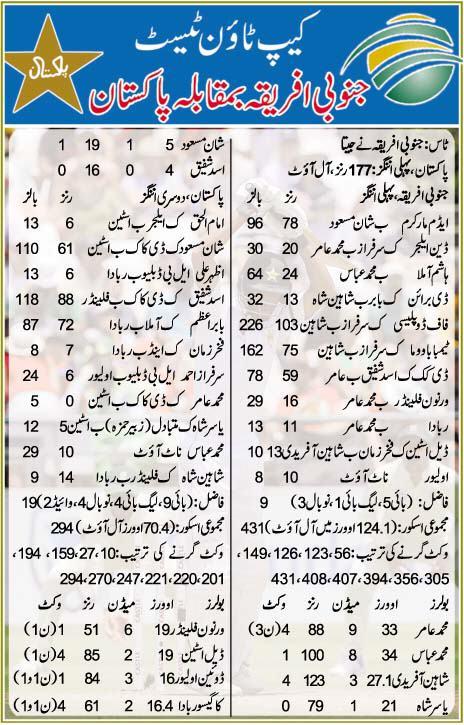 پاکستان
کیپ ٹاؤن ٹیسٹ
جنوبی افریقہ بمقابلہ پاکستان
ٹاس: جنوبی افریقہ نے جیتا
پاکستان، پہلی انگز: 177 رنز، آل آؤٹ
جنوبی افریقہ، پہلی انگز رنز بالز
ایڈم مارکرم ب شان مسعود 78 96
ڈین ایلجر ک سرفراز ب محمد عامر 20 30
ہاشم آملا ب محمد عباس 24 64
ڈی برائن ک بابر ب شاہین شاہ 13 32
فاف ڈوپلیسی ک سرفراز ب شاہین 103 226
ٹیمبا باووما ک سرفراز ب شاہین 75 162
ڈی کک ک اسد شفیق ب عامر 59 78
ورنون فلینڈر ب محمد عامر 16 29
ربادا ب محمد عامر 11 13
ڈیل اسٹین ک فخر زمان ب شاہین آفریدی 13 10
اولیور ناٹ آؤٹ 10 8
فاضل: (بائی 5، لیگ بائی 1، نوبال 3) 9
مجموعی اسکور: (124.1 اوورز میں آل آؤٹ) 431
وکٹ گرنے کی ترتیب: 56، 123، 126، 149،
305، 356، 394، 407، 408، 431
بولرز اوورز میڈن رنز وکٹ
محمد عامر 33 9 88 4 (ن3)
محمد عباس 34 8 100 1
شاہین آفریدی 27.1 3 123 4
یاسر شاہ 21 1 79 0
شان مسعود 5 1 19 1
اسد شفیق 4 0 16 0
پاکستان، دوسری انگز رنز بالز
امام الحق ک ایلجر ب اسٹین 6 13
شان مسعود ک ڈی کاک ب اسٹین 61 110
اظہر علی ایل بی ڈبلیو ب ربادا 6 13
اسد شفیق ک ڈی کاک ب فلینڈر 88 118
بابر اعظم ک آملا ب ربادا 72 87
فخر زمان ک اینڈ ب ربادا 7 8
سرفراز احمد ایل بی ڈبلیو ب اولیور 6 24
محمد عامر ک ڈی کاک ب اسٹین 0 5
یاسر شاہ ک متبادل (زبیر حمزہ) ب اسٹین 5 12
محمد عباس ناٹ آؤٹ 10 29
شاہین شاہ ک فلینڈر ب ربادا 14 9
فاضل: (بائی 9، لیگ بائی 4، نوبال 4، وائیڈ 2) 19
مجموعی اسکور: (70.4 اوورز آل آؤٹ) 294
وکٹ گرنے کی ترتیب: 10، 27، 159، 194،
201، 220، 221، 247، 270، 294
بولرز اوورز میڈن رنز وکٹ
ورنون فلینڈر 19 6 51 1 (ن1)
ڈیل اسٹین 19 2 85 4 (ن1)
ڈوئین اولیور 16 3 84 1 (ن1 و1)
کاگیسور بادا 16.4 2 61 4 (ن1 و1)